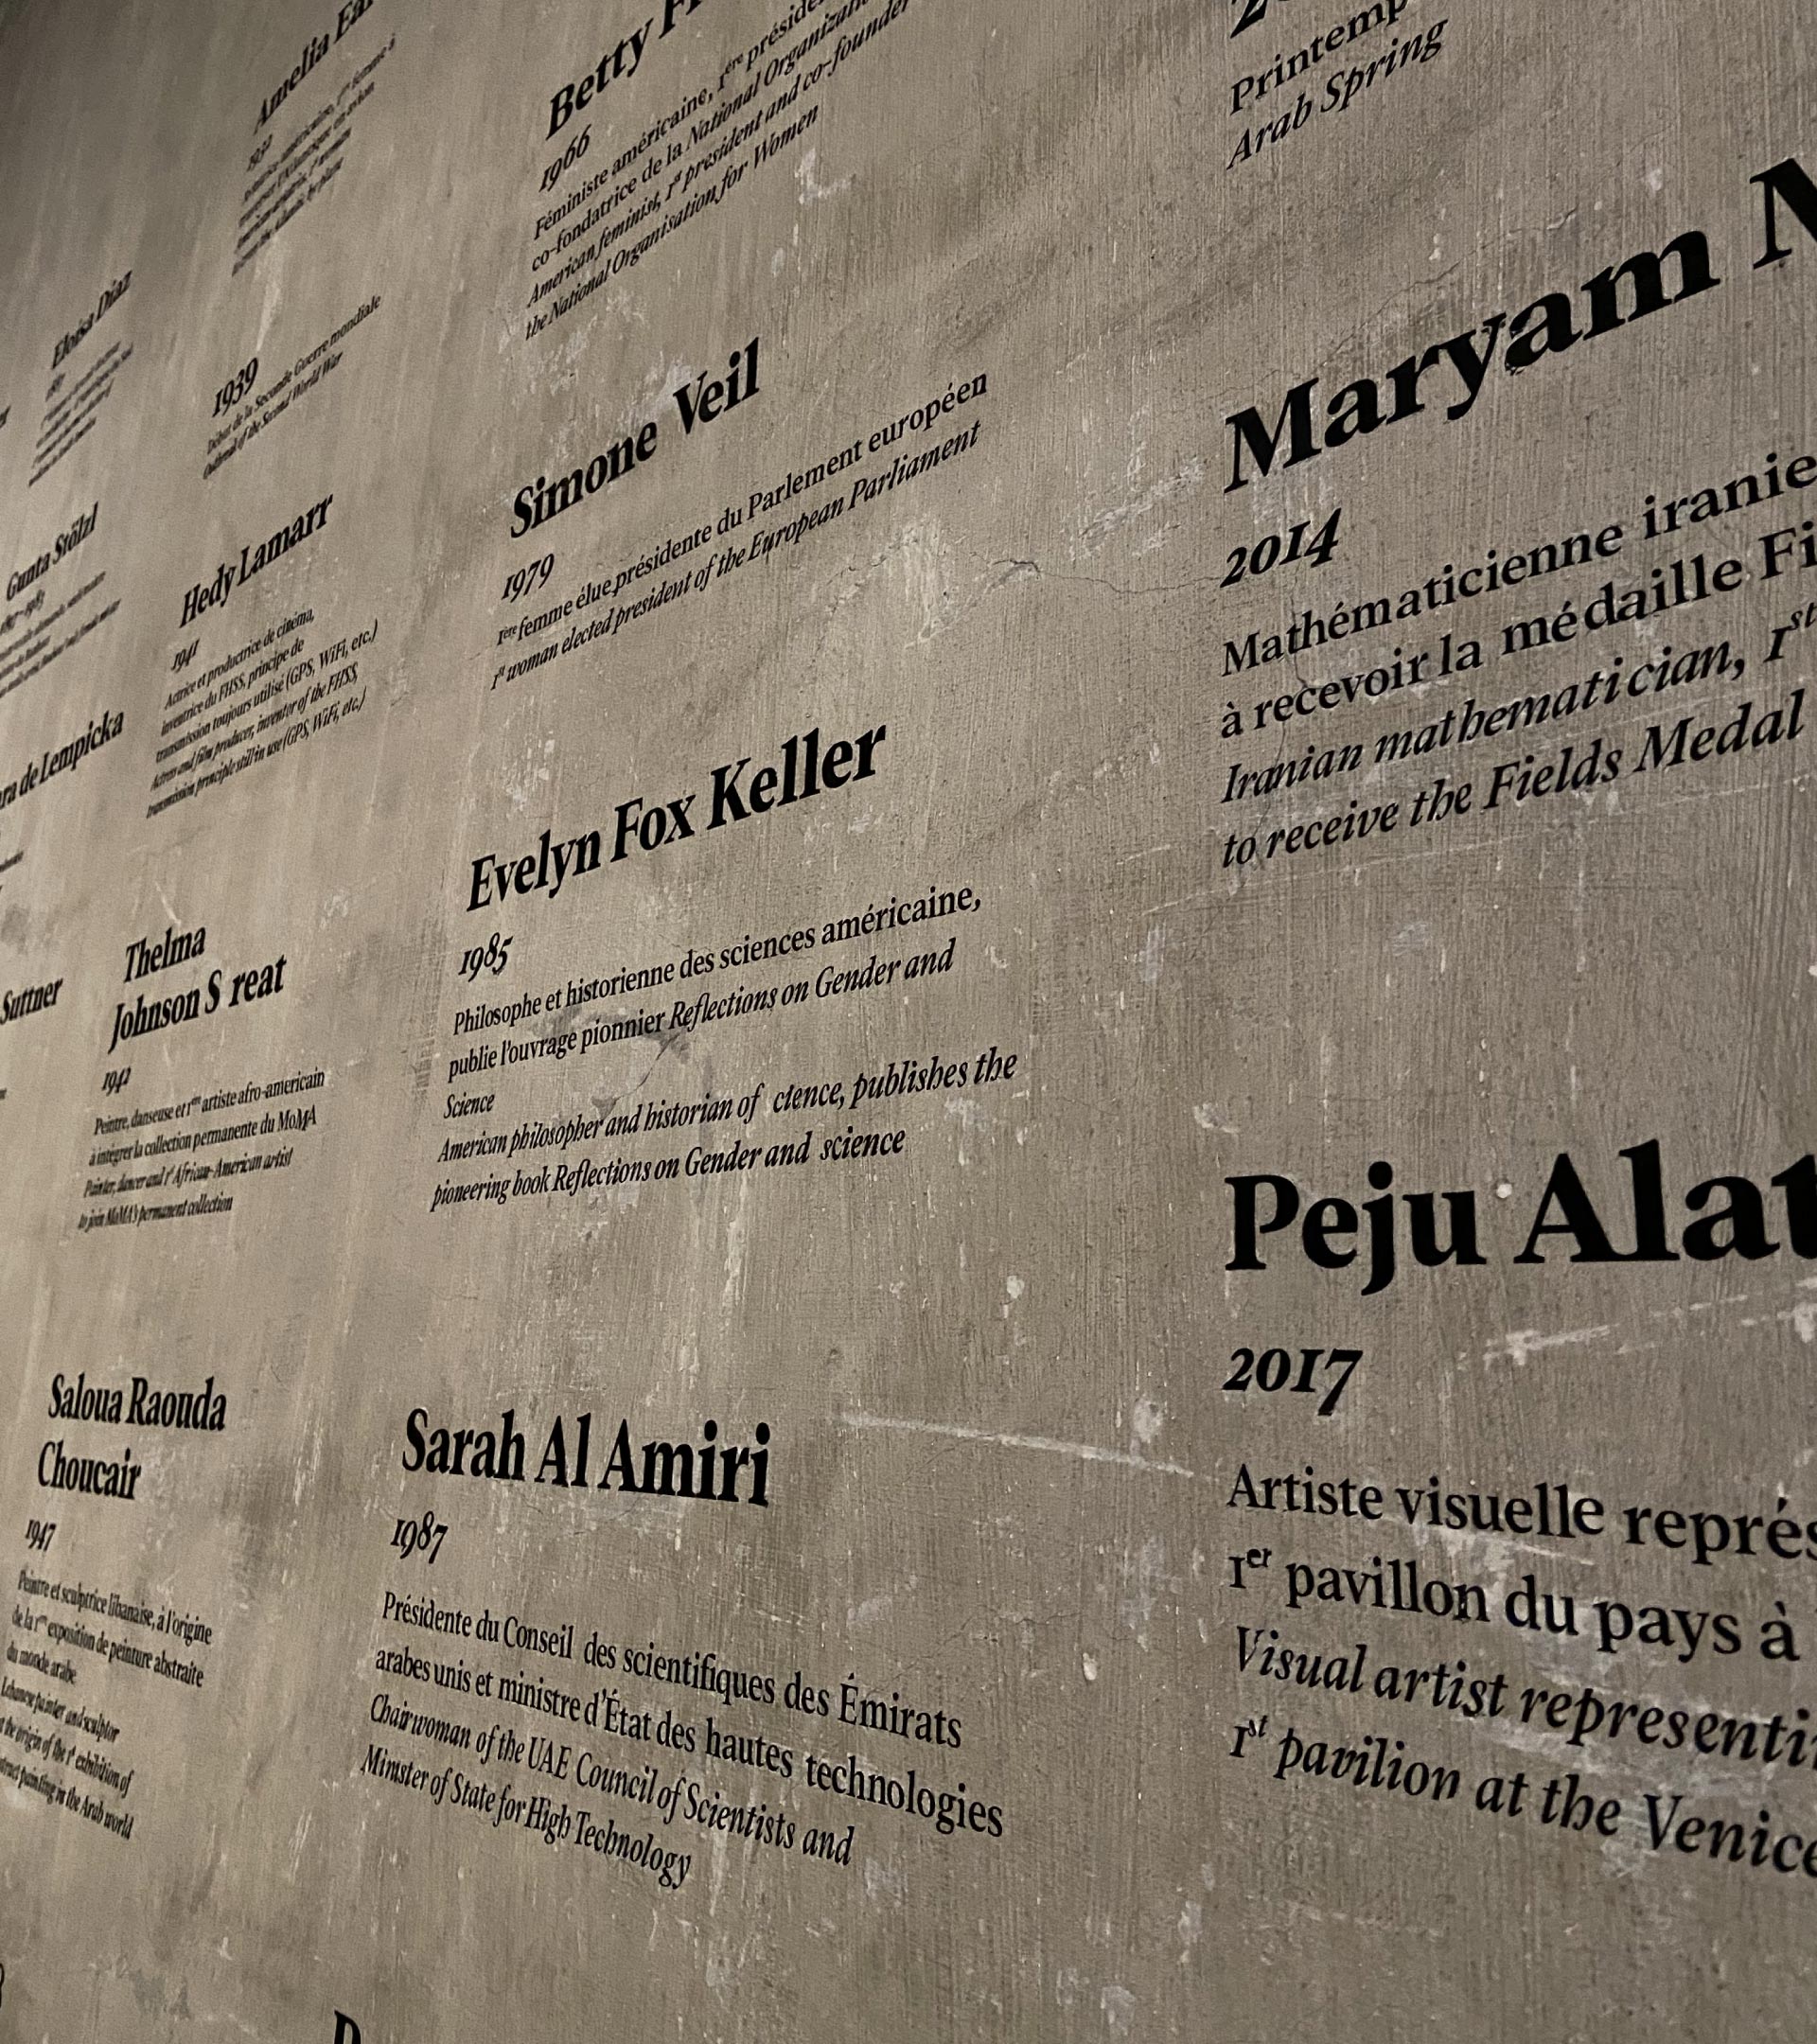 Amelia
1932
Betty
1966
Féministe américaine, 1ère
co-fondatrice de la National
American feminist, 1st president and co-founder
the National Organisation for Women
Printemp
Arab Spring
Eloisa Díaz
1939
Début de la Seconde Guerre mondiale
Outbreak of the Second World War
Simone Veil
1979
1ère femme élue présidente du Parlement européen
1st woman elected president of the European Parliament
Maryam
2014
Mathématicienne iranie
à recevoir la médaille Fi
Iranian mathematician, 1st
to receive the Fields Medal
Gunta Stölzl
Hedy Lamarr
1941
Actrice et productrice de cinéma,
inventrice du FHSS, principe de
transmission toujours utilisé (GPS, WiFi, etc.)
Actress and film producer, inventor of the FHSS,
transmission principle still in use (GPS, WiFi, etc.)
ra de Lempicka
Evelyn Fox Keller
1985
Philosophe et historienne des sciences américaine,
publie l'ouvrage pionnier Reflections on Gender and
Science
American philosopher and historian of cience, publishes the
pioneering book Reflections on Gender and science
Suttner
Thelma
Johnson S reat
1942
Peintre, danseuse et 1ère artiste afro-americain
à intégrer la collection permanente du MoMA
Painter, dancer and 1st African-American artist
to join MoMA's permanent collection
Peju Alat
2017
Artiste visuelle représ
1er pavillon du pays à
Visual artist representi
1st pavilion at the Venice
Saloua Raouda
Choucair
1947
Peintre et sculptrice libanaise, à l'origine
de la 1ère exposition de peinture abstraite
du monde arabe
Lebanese painter and sculptor
at the origin of the 1st exhibition of
stract painting in the Arab world
Sarah Al Amiri
1987
Présidente du Conseil des scientifiques des Émirats
arabes unis et ministre d'État des hautes technologies
Chairwoman of the UAE Council of Scientists and
Minister of State for High Technology